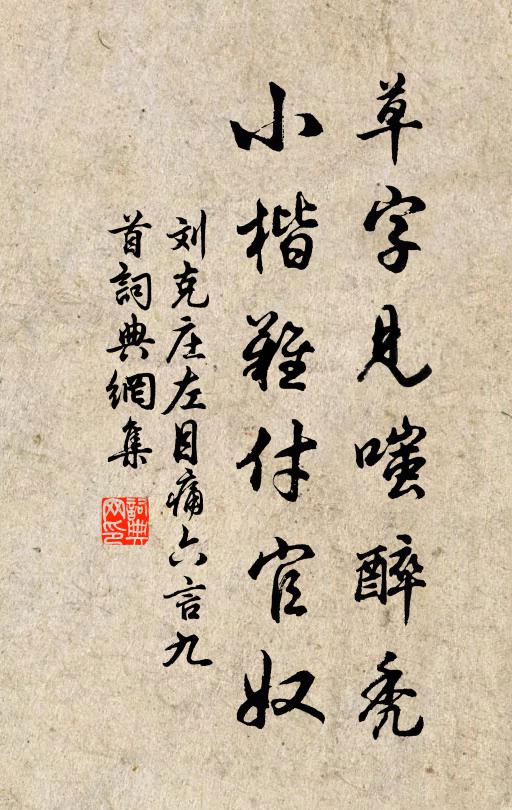 草字見嗤醉禿
小楷難付官奴
刘克庄左目痛六言九
首詞典網集
詞典網印